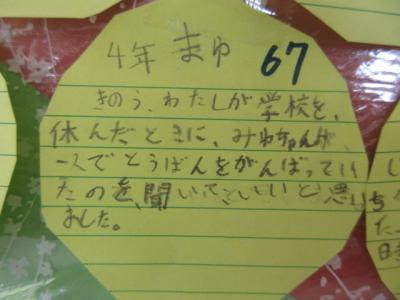 4年 まゆ 67
きのう、わたしが学校を、
休んだときに、みゆちゃんが、
一人でとうばんをがんばってい
たのを、聞いて、いいと思い
ました。